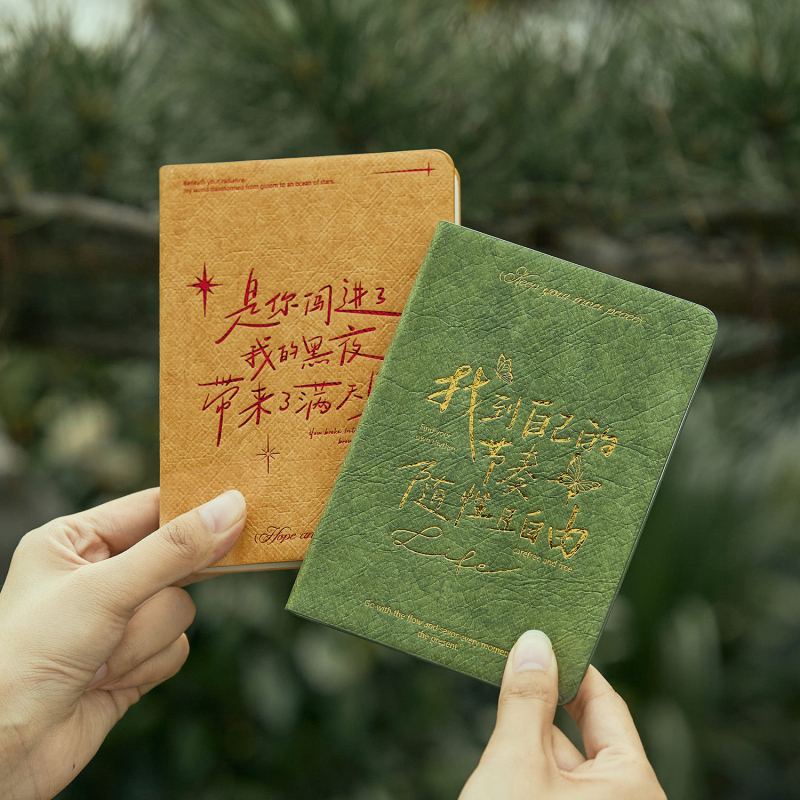 Beneath your radiance,
my world transformed from gloom to an ocean of stars.
是你闯进了
我的黑夜
带来了满天
You broke into
Hope an
Keep your inner peace
找到自己的
节奏
随性且自由
carefree and free
Life
Go with the flow and savor every moment
the present